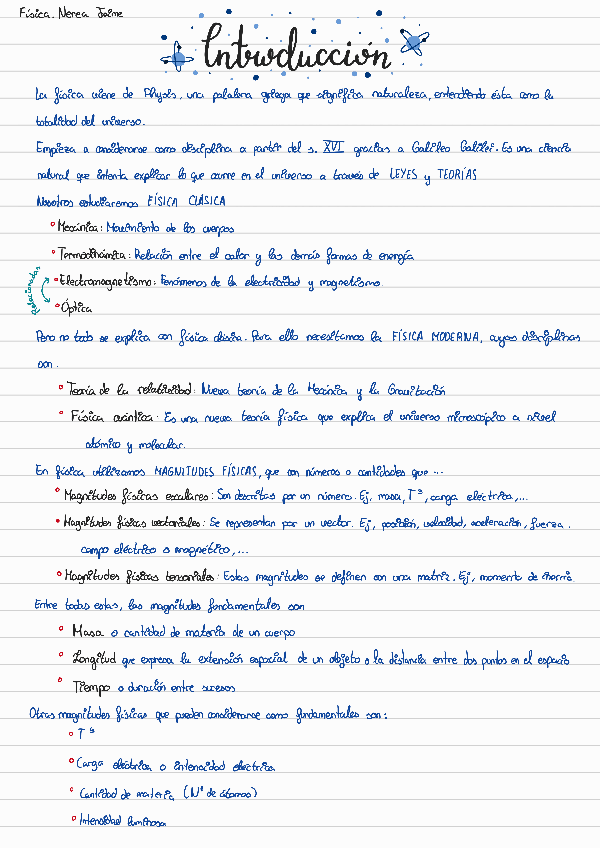 Física. Nerea Jaime
Introducción
La física viene de Physis, una palabra griega que significa naturaleza, entendiendo ésta como la
totalidad del universo.
Empieza a considerarse como disciplina a partir del s. XVI gracias a Galileo Galilei. Es una ciencia
natural que intenta explicar lo que ocurre en el universo a través de LEYES y TEORÍAS
Nosotros estudiaremos FÍSICA CLÁSICA
• Mecánica: Movimiento de los cuerpos
• Termodinámica: Relación entre el calor y las demás formas de energía
• Electromagnetismo: Fenómenos de la electricidad y magnetismo.
Relacionadas
• Óptica
Pero no todo se explica con física clásica. Para ello necesitamos la FÍSICA MODERNA, cuyas disciplinas
son:
• Teoría de la relatividad: Nueva teoría de la Mecánica y la Gravitación
• Física cuántica: Es una nueva teoría física que explica el universo microscópico a nivel
atómico y molecular.
En física utilizamos MAGNITUDES FÍSICAS, que son números o cantidades que ...
• Magnitudes físicas escalares: Son descritas por un número. Ej, masa, Tª, carga eléctrica,...
• Magnitudes físicas vectoriales: Se representan por un vector. Ej, posición, velocidad, aceleración, fuerza,
campo eléctrico o magnético,...
• Magnitudes físicas tensoriales: Estas magnitudes se definen con una matriz. Ej, momento de inercia
Entre todas estas, las magnitudes fundamentales son
• Masa o cantidad de materia de un cuerpo
• Longitud que expresa la extensión espacial de un objeto o la distancia entre dos puntos en el espacio
• Tiempo o duración entre sucesos
Otras magnitudes físicas que pueden considerarse como fundamentales son:
• Tª
• Carga eléctrica o intensidad eléctrica
• Cantidad de materia (Nº de átomos)
• Intensidad luminosa